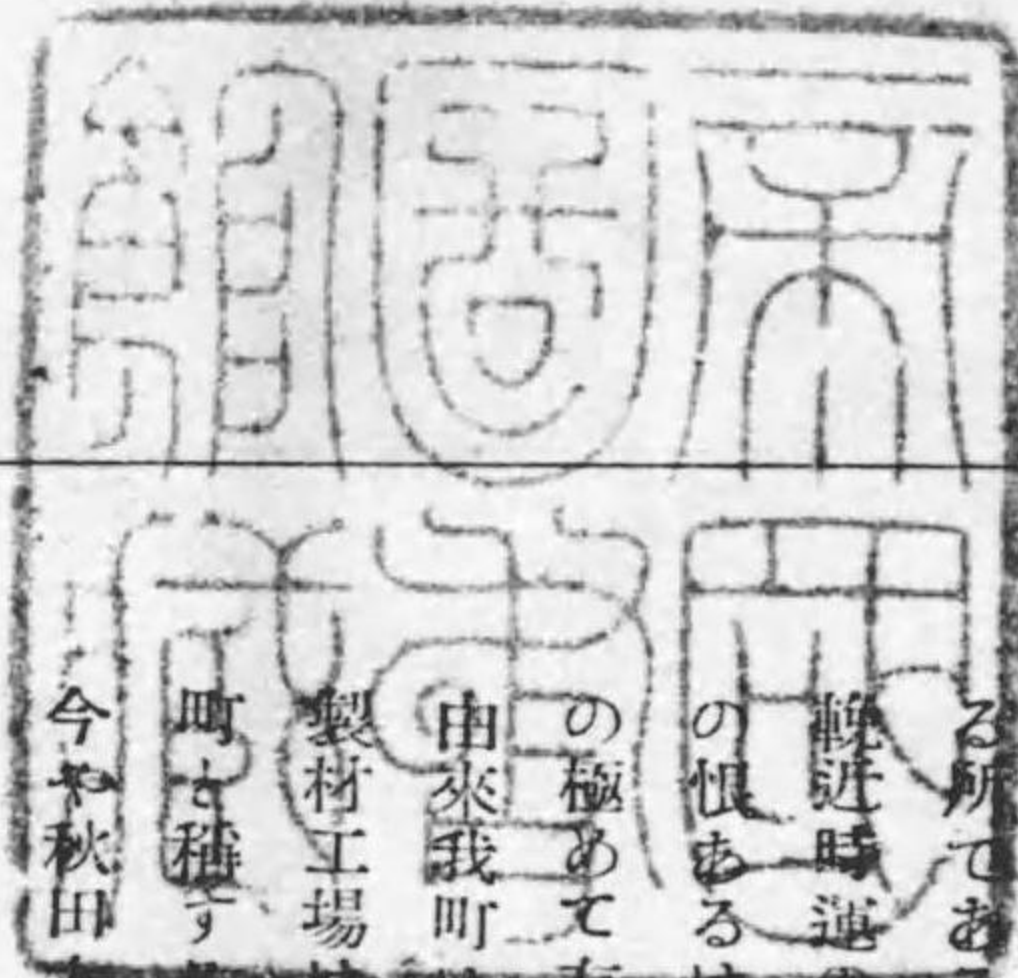 帝國圖書館藏
る所であ
輓近時運
の恨ある
の極めて
由來我町
製材工場
町と稱す
今や秋田